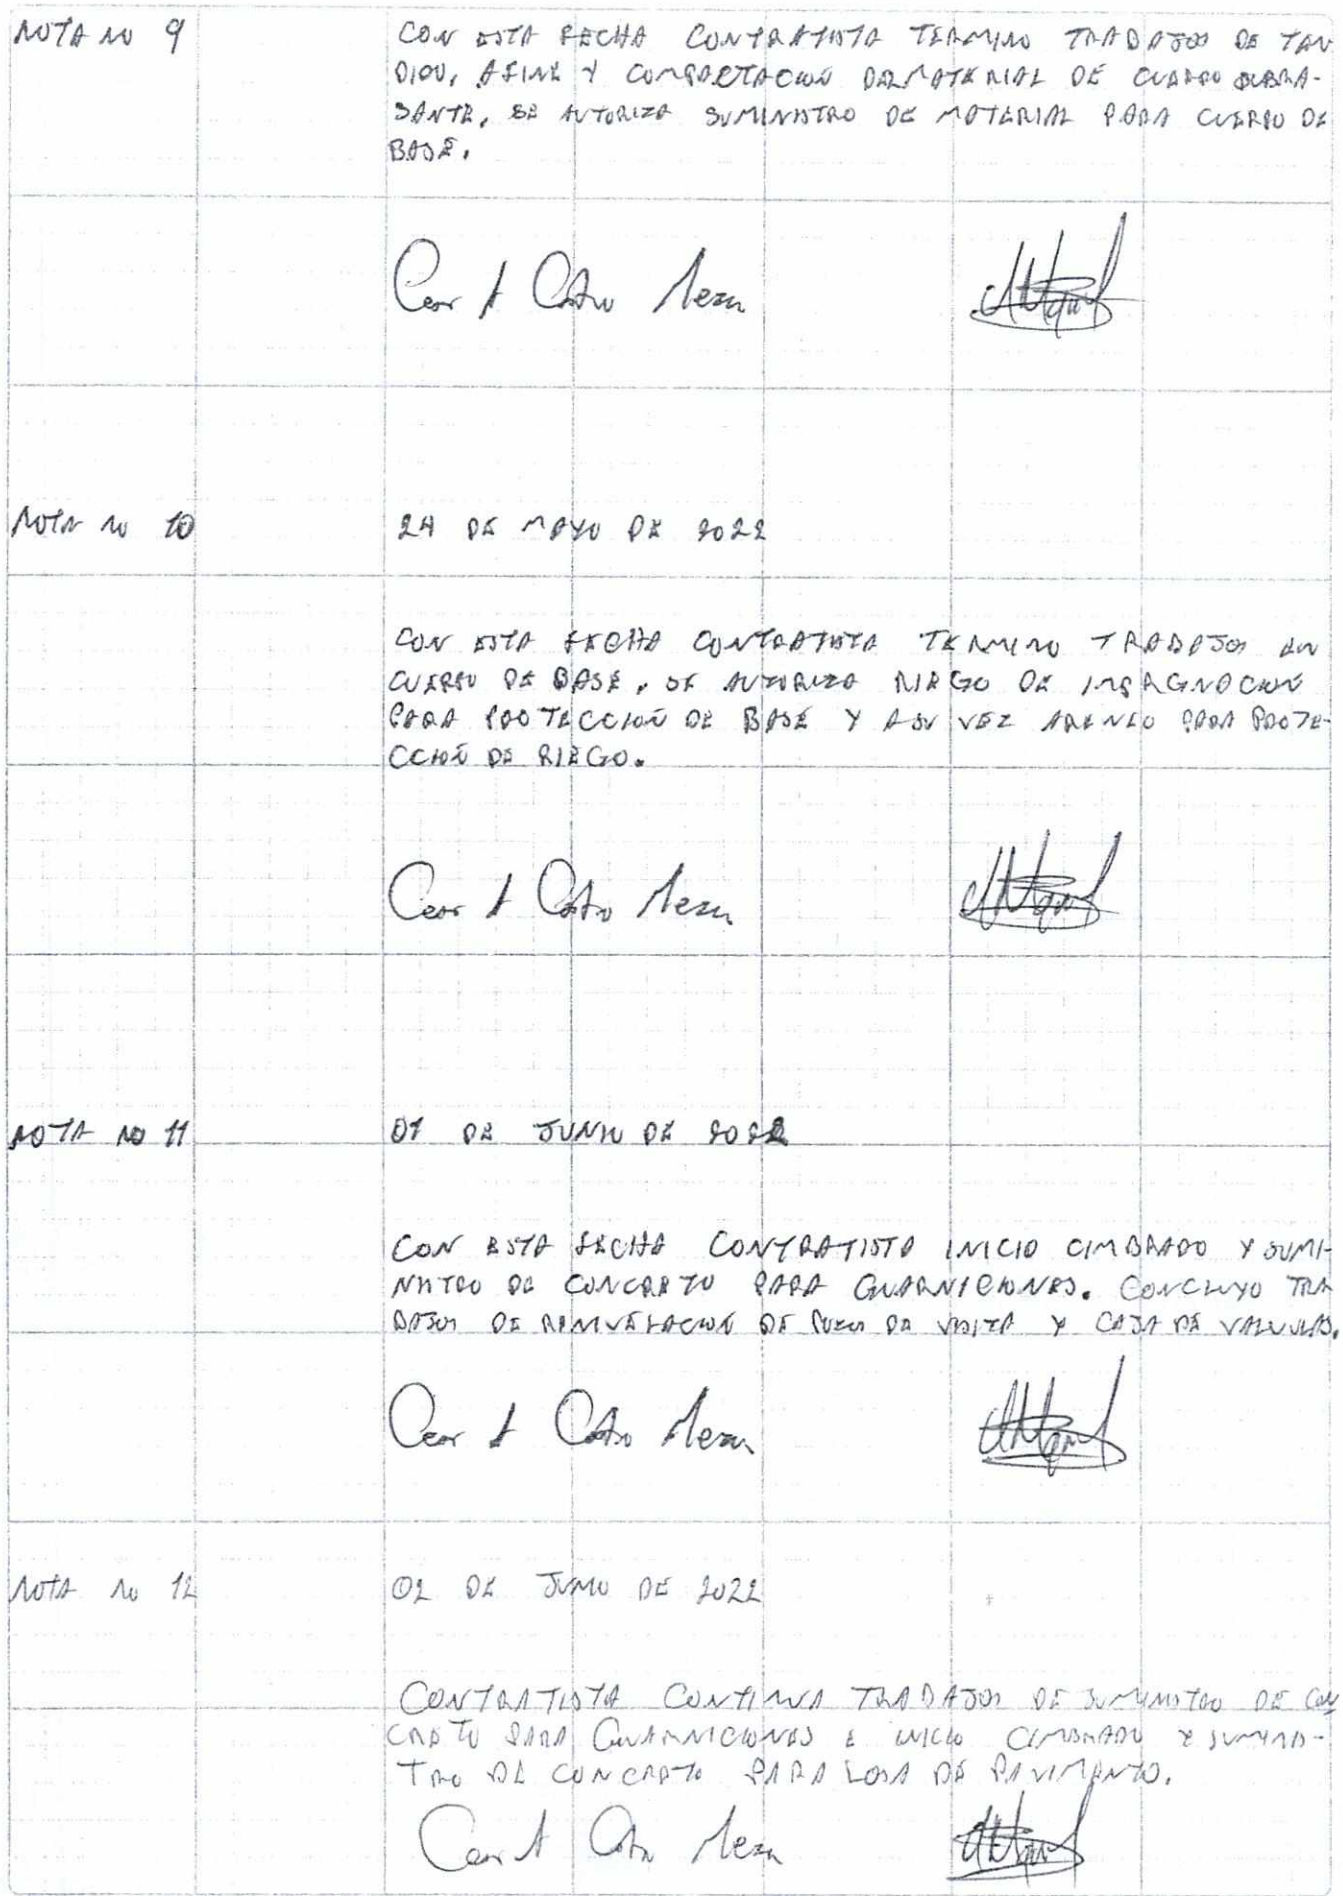 NOTA NO 9
CON ESTA FECHA CONTRATISTA TERMINO TRABAJOS DE TEN
DIDO, AFINE Y COMPACTACIÓN DE MATERIAL DE CUERPO SUBRA-
SANTE, SE AUTORIZA SUMINISTRO DE MATERIAL PARA CUERPO DE
BASE.
Cesar A Castro Meza
NOTA NO 10
24 DE MAYO DE 2022
CON ESTA FECHA CONTRATISTA TERMINO TRABAJOS EN
CUERPO DE BASE, SE AUTORIZA RIEGO DE IMPREGNACIÓN
PARA PROTECCIÓN DE BASE Y A SU VEZ ARENEO PARA PROTE-
CCIÓN DE RIEGO.
Cesar A Castro Meza
NOTA NO 11
01 DE JUNIO DE 2022
CON ESTA FECHA CONTRATISTA INICIO CIMBRADO Y SUMI-
NISTRO DE CONCRETO PARA GUARNICIONES. CONCLUYO TRA
BAJOS DE RENIVELACIÓN DE POZOS DE VISITA Y CAJA DE VALVULAS.
Cesar A Castro Meza
NOTA NO 12
02 DE JUNIO DE 2022
CONTRATISTA CONTINUA TRABAJOS DE SUMINISTRO DE CON
CRETO PARA GUARNICIONES E INICIO CIMBRADO Y SUMINIS-
TRO DE CONCRETO PARA LOSA DE PAVIMENTO.
Cesar A Castro Meza